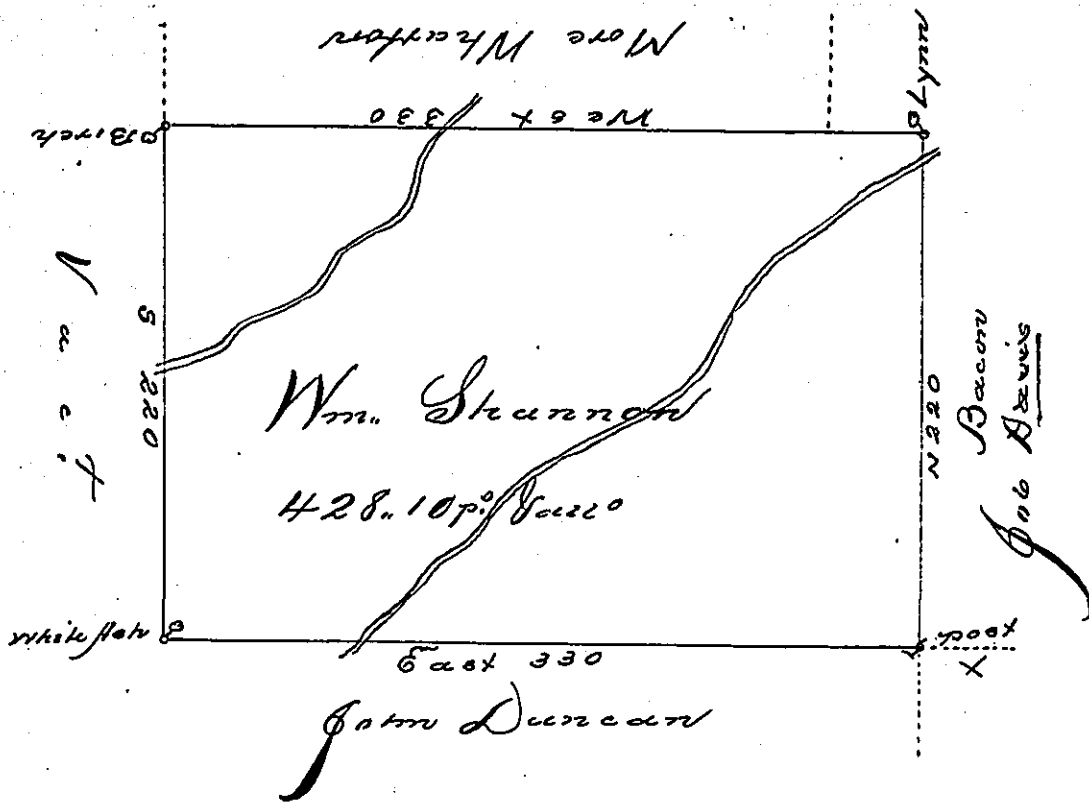 More Wharton
West 330
Birch
Lynn
Vact
S 220
Wm. Shannon
428..10ps.
N 220
Bacon
Job Dennis
White Ash
East 330
post
X
John Duncan